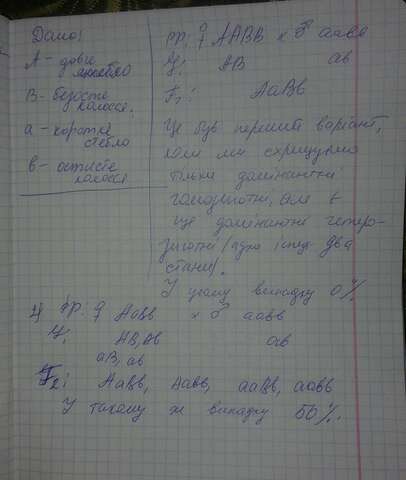 Дано:
А - довге
стебло
В - безосте
колосся.
а - коротке
стебло
в - остисте
колосся
РР: ♀ ААВВ х ♂ аавв
Ч: АВ ав
F₁: АаВв
Це був перший варіант,
коли ми схрещуємо
тільки домінантні
гомозиготи, але є
ще домінантні гетеро-
зиготні
стани).
У цьому випадку 0%.
РР: ♀ АаВв х ♂ аавв
Ч: АВ, Ав ав
аВ, ав
F₂: АаВв, Аавв, ааВв, аавв
У такому ж випадку 50%.